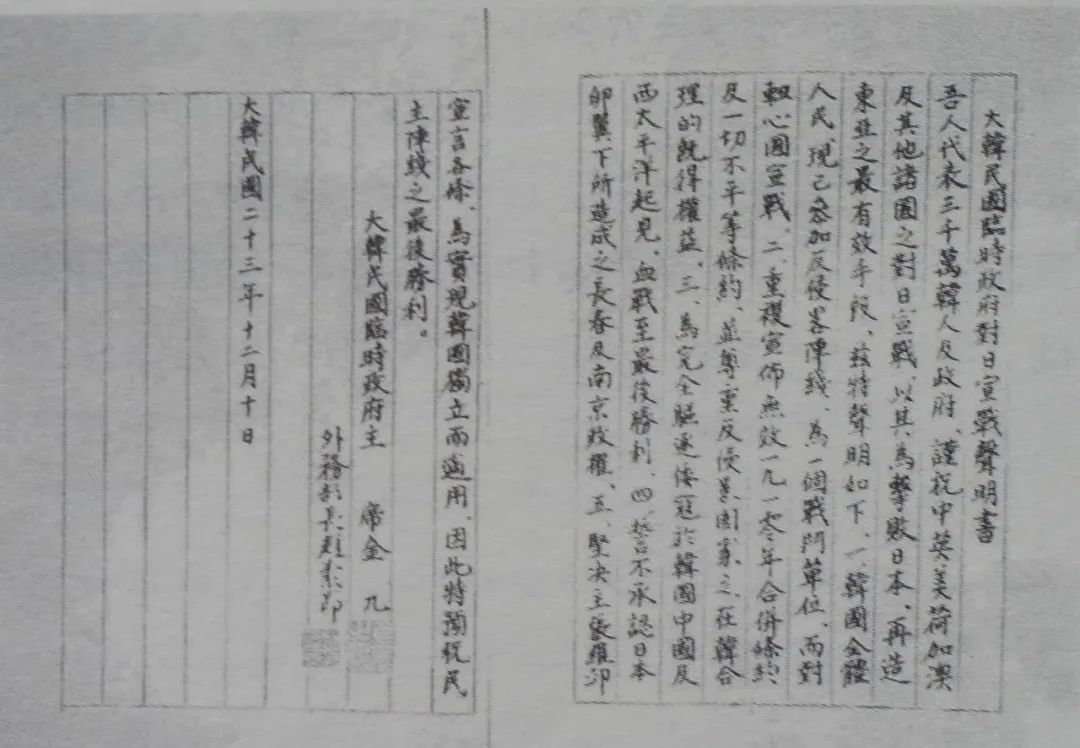 大韓民國臨時政府對日宣戰聲明書
吾人代表三千萬韓人及政府、謹祝中英美荷加澳
及其他諸國之對日宣戰、以其為擊敗日本、再造
東亞之最有效手段、茲特聲明如下、一、韓國全體
人民、現已參加反侵畧陣綫、為一個戰鬥單位、而對
軸心國宣戰、二、重複宣佈無效一九一零年合併條約
及一切不平等條約、並尊重反侵畧國家之在韓合
理的既得權益、三、為完全驅逐倭寇於韓國中國及
西太平洋起見、血戰至最後勝利、四、誓不承認日本
卵翼下所造成之長春及南京政權、五、堅決主張羅邱
宣言各條、為實現韓國獨立而適用、因此特預祝民
主陣綫之最後勝利。
大韓民國臨時政府主 席金 九
外務部長趙素卬
大韓民國二十三年十二月十日